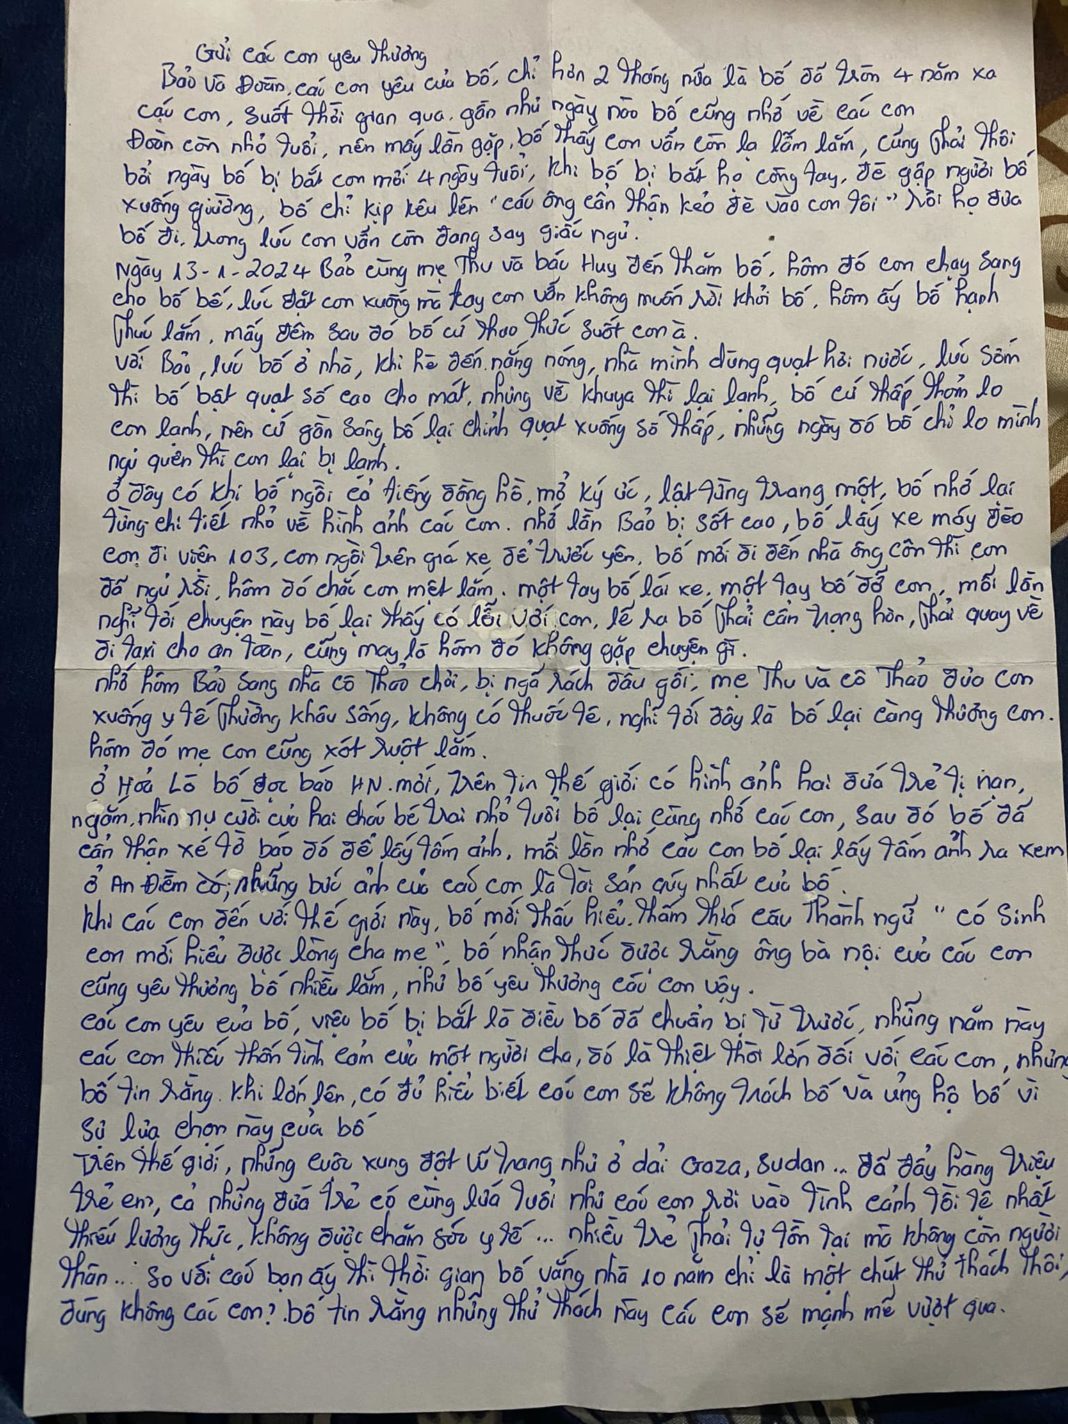 Gửi các con yêu thương
Bảo và Đoàn, các con yêu của bố, chỉ hơn 2 tháng nữa là bố đã tròn 4 năm xa
các con, suốt thời gian qua, gần như ngày nào bố cũng nhớ về các con
Đoàn còn nhỏ tuổi, nên mấy lần gặp, bố thấy con vẫn còn lạ lẫm lắm, cũng phải thôi
bởi ngày bố bị bắt con mới 4 ngày tuổi, khi bố bị bắt họ còng tay, đè gập người bố
xuống giường, bố chỉ kịp kêu lên "các ông cẩn thận kẻo đè vào con tôi" rồi họ đưa
bố đi, trong lúc con vẫn còn đang say giấc ngủ.
Ngày 13-1-2024 Bảo cùng mẹ Thu và bác Huy đến thăm bố, hôm đó con chạy sang
cho bố bế, lúc đặt con xuống mà tay con vẫn không muốn rời khỏi bố, hôm ấy bố hạnh
phúc lắm, mấy đêm sau đó bố cứ thao thức suốt con à.
Với Bảo, lúc bố ở nhà, khi hè đến nắng nóng, nhà mình dùng quạt hơi nước, lúc sớm
thì bố bật quạt số cao cho mát, nhưng về khuya thì lại lạnh, bố cứ thấp thỏm lo
con lạnh, nên cứ gần sáng bố lại chỉnh quạt xuống số thấp, những ngày đó bố chỉ lo mình
ngủ quên thì con lại bị lạnh.
Ở đây có khi bố ngồi cả tiếng đồng hồ, mở ký ức, lật từng trang một, bố nhớ lại
từng chi tiết nhỏ về hình ảnh các con. nhớ lần Bảo bị sốt cao, bố lấy xe máy đèo
con đi viện 103, con ngồi trên giá xe để trước yên, bố mới đi đến nhà ông côn thì con
đã ngủ rồi, hôm đó chắc con mệt lắm. một tay bố lái xe, một tay bố đỡ con, mỗi lần
nghĩ tới chuyện này bố lại thấy có lỗi với con, lẽ ra bố phải cẩn trọng hơn, phải quay về
đi taxi cho an toàn, cũng may là hôm đó không gặp chuyện gì.
nhớ hôm Bảo sang nhà cô Thảo chơi, bị ngã rách đầu gối, mẹ Thu và cô Thảo đưa con
xuống y tế phường khâu sống, không có thuốc tê, nghĩ tới đây là bố lại càng thương con.
hôm đó mẹ con cũng xót ruột lắm.
Ở Hỏa Lò bố đọc báo HN mới, trên tin thế giới có hình ảnh hai đứa trẻ tị nạn,
ngắm nhìn nụ cười của hai cháu bé trai nhỏ tuổi bố lại càng nhớ các con, sau đó bố đã
cẩn thận xé tờ báo đó để lấy tấm ảnh, mỗi lần nhớ các con bố lại lấy tấm ảnh ra xem
ở An Điềm có, những bức ảnh của các con là tài sản qúy nhất của bố.
Khi các con đến với thế giới này, bố mới thấu hiểu, thấm thía câu thành ngữ "có sinh
con mới hiểu được lòng cha mẹ", bố nhận thức được rằng ông bà nội của các con
cũng yêu thương bố nhiều lắm, như bố yêu thương các con vậy.
Các con yêu của bố, việc bố bị bắt là điều bố đã chuẩn bị từ trước, những năm này
các con thiếu thốn tình cảm của một người cha, đó là thiệt thòi lớn đối với các con, nhưng
bố tin rằng. Khi lớn lên, có đủ hiểu biết các con sẽ không trách bố và ủng hộ bố vì
sự lựa chọn này của bố
Trên thế giới, những cuộc xung đột vũ trang như ở dải Gaza, Sudan... đã đẩy hàng triệu
trẻ em, cả những đứa trẻ có cùng lứa tuổi như các con rơi vào tình cảnh tồi tệ nhất
thiếu lương thực, không được chăm sóc y tế ... nhiều trẻ phải tự tồn tại mà không còn người
thân... So với các bạn ấy thì thời gian bố vắng nhà 10 năm chỉ là một chút thử thách thôi,
đúng không các con? bố tin rằng những thử thách này các con sẽ mạnh mẽ vượt qua.